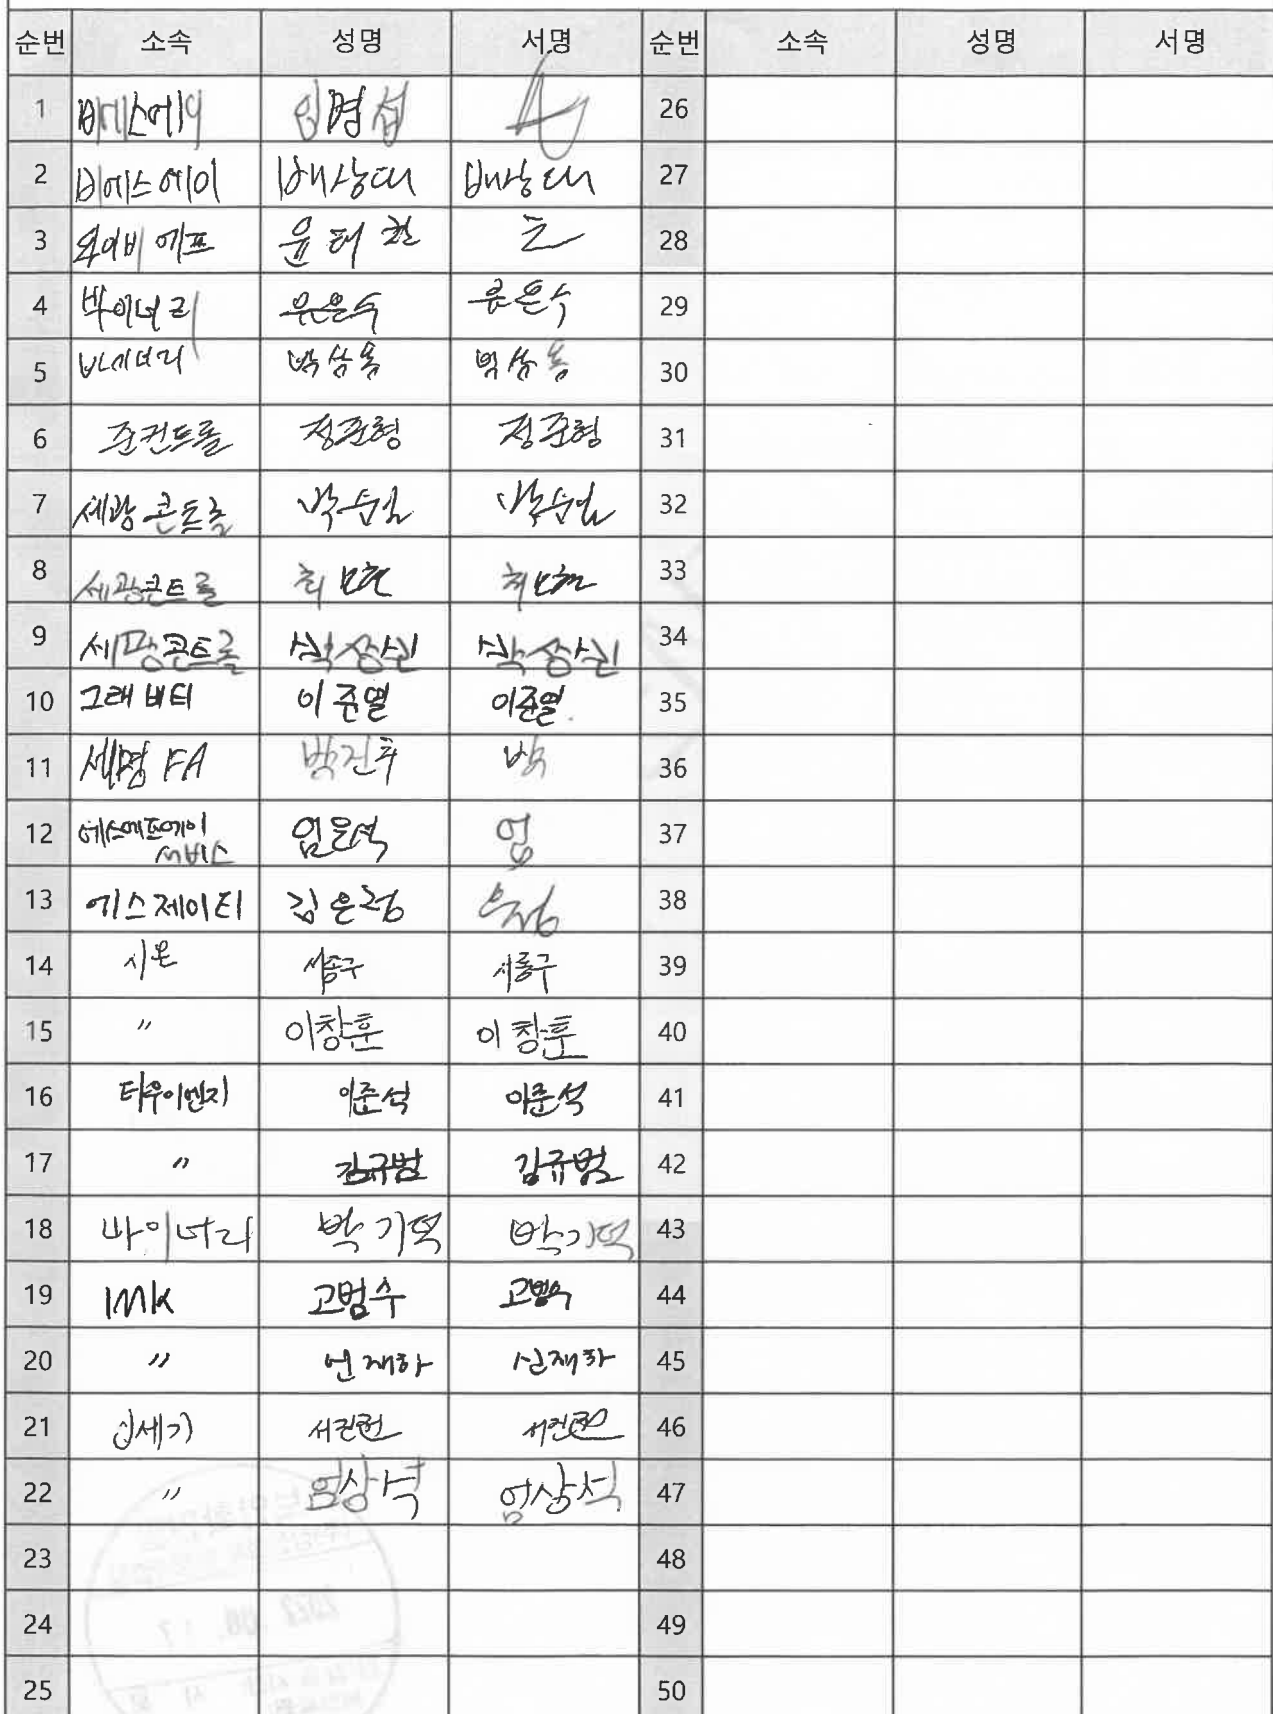 순번 소속 성명 서명 순번 소속 성명 서명
1 비에스에이 임명섭 26
2 비에스에이 배상대 배상대 27
3 와이비에프 윤태 28
4 바이너리 유은수 유은수 29
5 바이너리 박상용 박상용 30
6 준컨트롤 정준형 정준형 31
7 세광콘트롤 박순임 박순임 32
8 세광콘트롤 최 33
9 세광콘트롤 34
10 그래비티 이준열 이준열 35
11 세명 FA 박진우 박 36
12 에스에프에이 서비스 엄은석 엄 37
13 에스제이티 김은정 38
14 시온 서동구 서동구 39
15 〃 이창훈 이창훈 40
16 타우이엔지 이준석 이준석 41
17 〃 김규범 김규범 42
18 바이너리 박기덕 박기덕 43
19 IMK 고범수 고범수 44
20 〃 신재하 신재하 45
21 신세기 서진원 서진원 46
22 〃 엄상석 엄상석 47
23 48
24 49
25 50